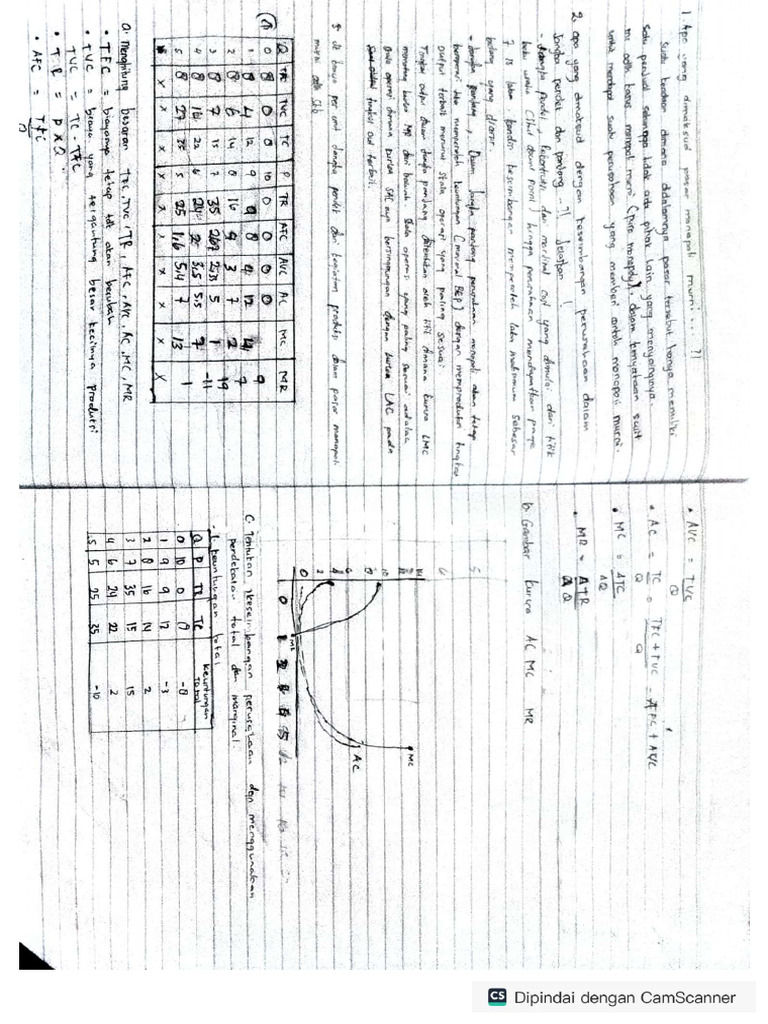 1. Apa yang dimaksud pasar monopoli murni...?!
Suatu keadaan dimana didalamnya pasar tersebut hanya memiliki
satu penjual sehingga tidak ada pihak lain yang menyainginya.
Ini adlh kasus monopoli murni (pure monopoly). dalam kenyataan sulit
untuk mendapat suatu perusahaan yang memberi contoh monopoli murni.
2. apa yang dimaksud dengan keseimbangan perusahaan dalam
Jangka pendek dan panjang ?! Jelaskan !
- Jangka Pendek, Ketentuan dari marginal cost yang dimulai dari titik
(shut down point) hingga perusahaan mendapatkan
keseimbangan memperoleh laba maksimum sebesar
bidang yang diarsir.
- Jangka panjang, Dalam jangka panjang perusahaan monopoli akan tetap
beroperasi jika memperoleh keuntungan (minimal BEP) dengan memproduksi tingkat
output terbaik menurut skala operasi yang paling sesuai.
Tingkat output dalam jangka panjang ditentukan oleh titik dimana kurva LMC
memotong kurva MR dari bawah. Skala operasi yang paling sesuai adalah
skala operasi dimana kurva SAC nya bersinggungan dengan kurva LAC pada
tingkat out terbaik.
3. per unit jangka pendek dan produksi dalam pasar monopoli
murni adlh sbb
Q TFC TVC TC P TR AFC AVC AC MC MR
0 8 0 8 10 0 0 0 0
1 8 4 12 9 9 8 4 12 4 9
2 8 6 14 8 16 4 3 7 2 7
3 8 7 15 7 35 2,67 2,33 5 1 19
4 8 14 22 6 24 2 3,5 5,5 7 -11
5 8 27 35 5 25 1,6 5,4 7 13 1
x x x x x x x x x x
a. Menghitung besaran TFC, TVC, TR, AFC, AVC, AC, MC, MR
• TFC = biayanya tetap tdk akan berubah
• TVC = biaya yang tergantung besar kecilnya produksi
TVC = TC - TFC
• TR = P x Q
• AFC = TFC
Q
• AVC = TVC
Q
• AC = TC = TFC + TVC = AFC + AVC
Q Q
• MC = ΔTC
ΔQ
• MR = ΔTR
ΔQ
b. Gambar kurva AC MC MR
0 2 6 10
0
MR
5
AC
MC
C. Tentukan keseimbangan perusahaan dgn menggunakan
pendekatan total dan marginal.
- keuntungan total
Q P TR TC keuntungan total
0 10 0 8 -8
1 9 9 12 -3
2 8 16 14 2
3 7 35 15 15
4 6 24 22 2
5 5 25 35 -10
CS Dipindai dengan CamScanner